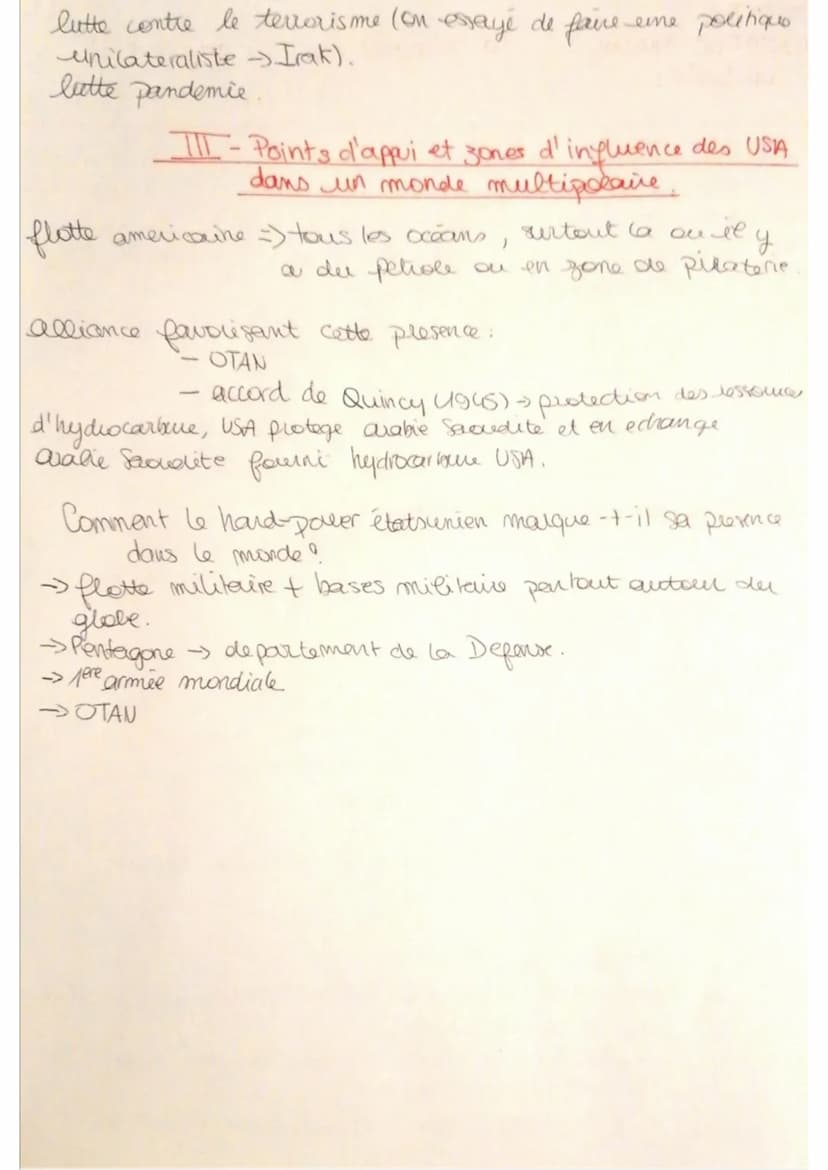 lutte contre le terrorisme (on essayé de faire une politique
unilateraliste → Irak).
lutte pandemie.
III - Points d'appui et zones d'influence des USA
dans un monde multipolaire.
flotte americaine => tous les océans, surtout la ou il y
a du petrole ou en zone de piraterie.
alliance favorisant cette presence :
- OTAN
- accord de Quincy (1945) → protection des ressources
d'hydrocarbure, USA protege arabie Saoudite et en echange
arabie Saoudite fourni hydrocarbure USA.
Comment le hard-power étatsunien marque-t-il sa presence
dans le monde ?
→ flotte militaire + bases militaire partout autour du
globe.
→ Pentagone → departement de la Defense.
→ 1ere armée mondiale
→ OTAN